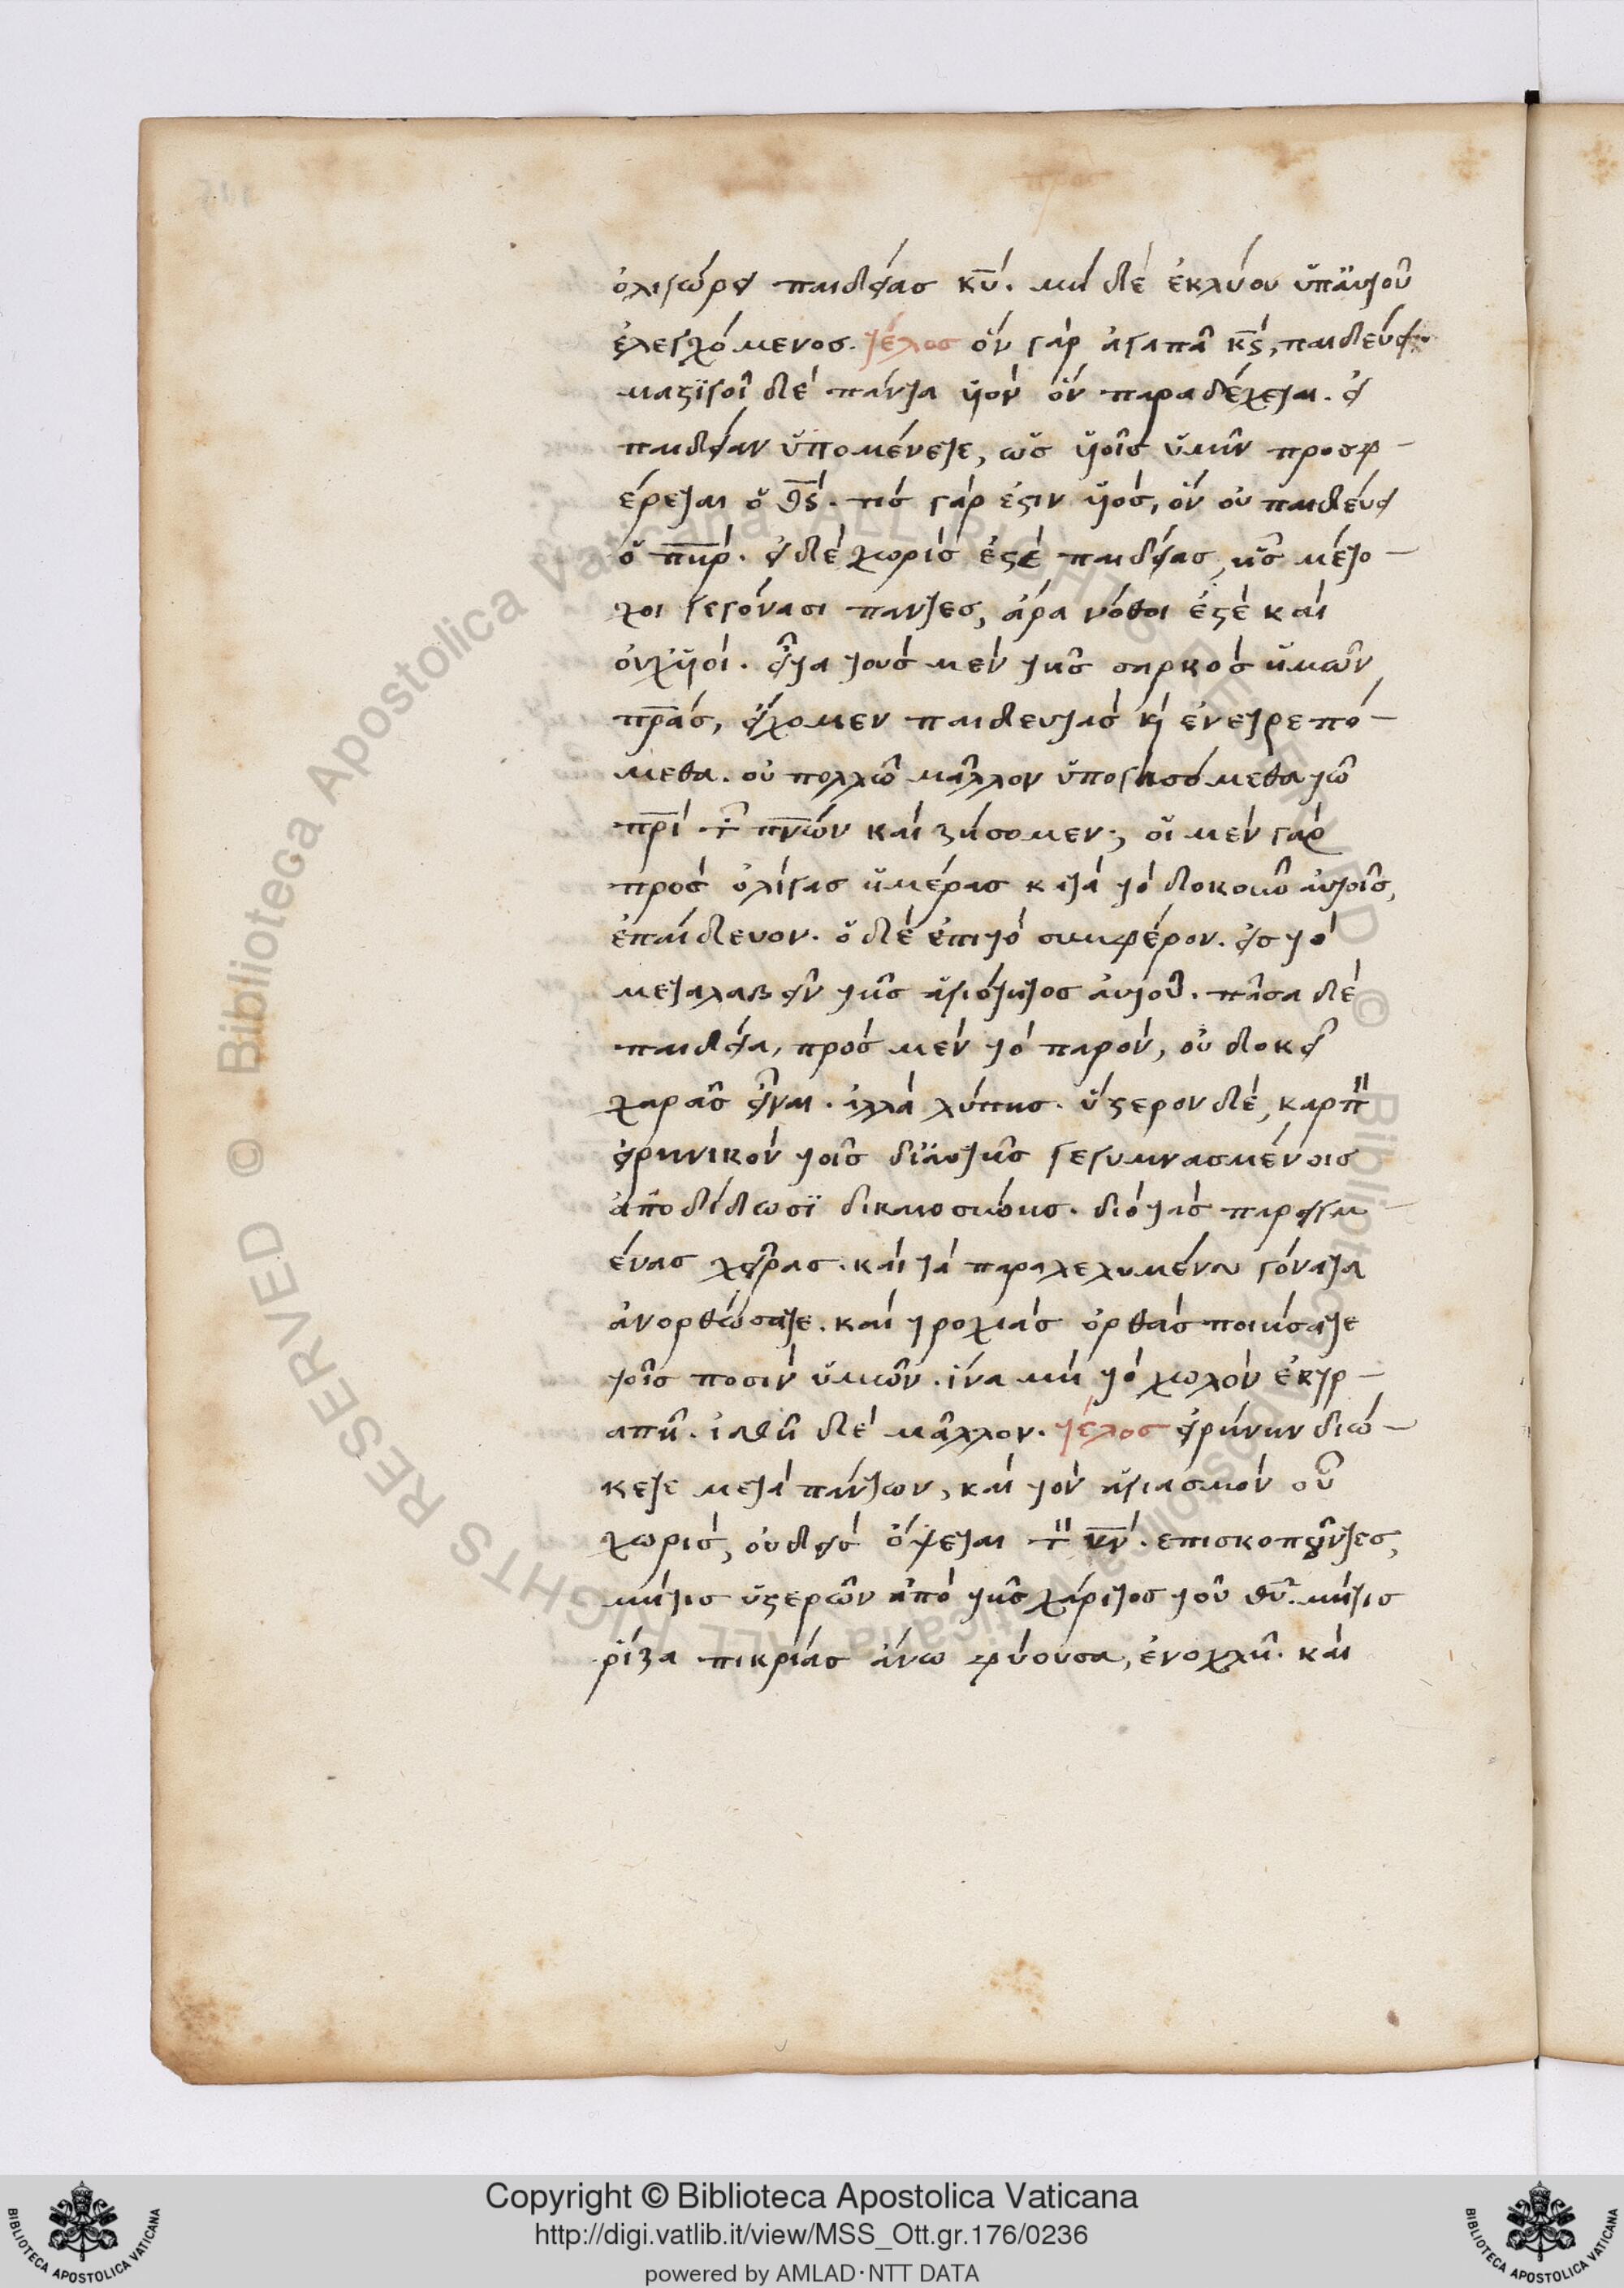 ὀλιγώρει παιδείας κ̅υ̅. μὴ δὲ ἐκλύου ὑπ' αὐτοῦ
ἐλεγχόμενος. τέλος ὃν γὰρ ἀγαπᾶ κ̅ς̅, παιδεύει.
μαστιγοῖ δὲ πάντα υἱὸν ὃν παραδέχεται. εἰ
παιδείαν ὑπομένετε, ὡς υἱοῖς ὑμῖν προσφ-
έρεται ὁ θ̅ς̅. τίς γάρ ἐστιν υἱός, ὃν οὐ παιδεύει
ὁ π̅η̅ρ̅. εἰ δὲ χωρίς ἐστε παιδείας, ἧς μέτο-
χοι γεγόνασι παντες, ἄρα νόθοι ἐστὲ καὶ
οὐχ υἱοί. εἶτα τοὺς μὲν τῆς σαρκὸς ἡμῶν
π̅ρ̅α̅ς̅, εἴχομεν παιδευτὰς κ̀ ἐνετρεπό-
μεθα. οὐ πολλῶ μᾶλλον ὑποταγησόμεθα τῶ
π̅ρ̅ι̅ τῶν π̅ν̅ω̅ν̅ καὶ ζήσομεν; οἱ μὲν γὰρ
πρὸς ὀλίγας ἡμέρας κατὰ τὸ δοκοῦν αὐτοῖς,
ἐπαίδευον. ὁ δὲ ἐπὶ τὸ συμφέρον. εἰς τὸ
μεταλαβεῖν τῆς ἁγιότητος αὐτοῦ. πᾶσα δὲ
παιδεία, πρὸς μὲν τὸ παρὸν, οὐ δοκεῖ
χαρᾶς εἶναι. ἀλλὰ λύπης. ὕστερον δὲ, καρπὸν
εἰρηνικὸν τοῖς δι' αὐτῆς γεγυμνασμένοις
ἀποδίδωσϊ δικαιοσύνης. διὸ τὰς παρειμ
ένας χεῖρας. καὶ τὰ παραλελυμένα γόνατα
ἀνορθώσατε. καὶ τροχιὰς ὀρθὰς ποιήσατε
τοῖς ποσὶν ὑμῶν. ἵνα μὴ τὸ χωλὸν ἐκτρ-
απῆ. ἰαθῆ δὲ μᾶλλον. τέλος εἰρήνην διώ-
κετε μετὰ πάντων, καὶ τὸν ἁγιασμὸν οὗ
χωρὶς, οὐδεὶς ὄψεται τὸν κ̅ν̅. επισκοποῦντες,
μήτις ὑστερῶν ἀπὸ τῆς χάριτος τοῦ θ̅υ̅. μήτις
ῥίζα πικρίας ἄνω φύουσα, ἐνοχλῆ. καὶ
Copyright © Biblioteca Apostolica Vaticana
http://digi.vatlib.it/view/MSS_Ott.gr.176/0236
powered by AMLAD·NTT DATA
BIBLIOTECA APOSTOLICA VATICANA
BIBLIOTECA APOSTOLICA VATICANA
© Biblioteca Apostolica Vaticana ALL RIGHTS RESERVED
© Biblioteca Apostolica Vaticana ALL RIGHTS RESERVED